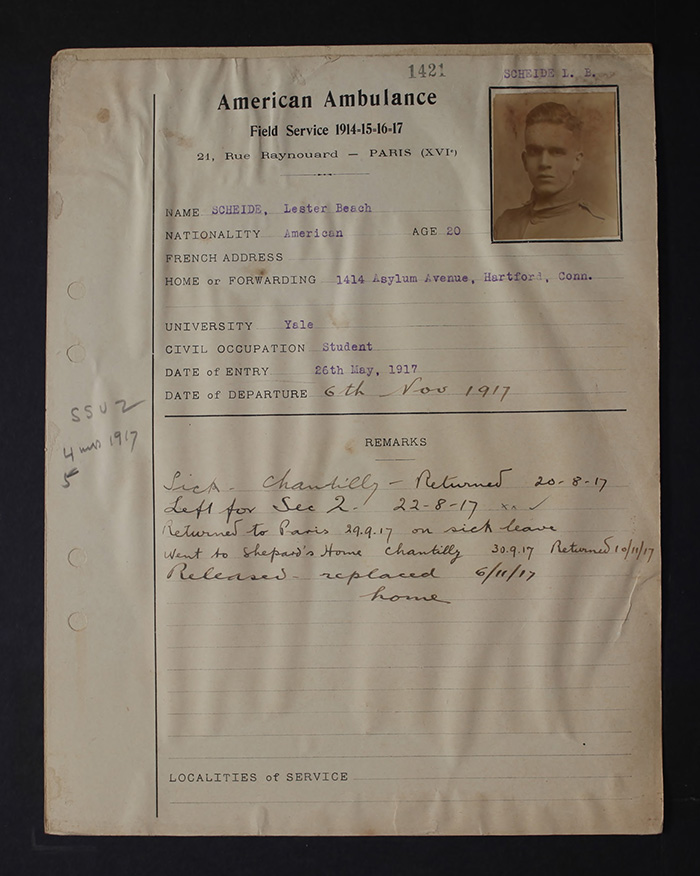 1421 SCHEIDE L. B.
American Ambulance
Field Service 1914-15-16-17
21, Rue Raynouard — PARIS (XVIe)
NAME SCHEIDE, Lester Beach
NATIONALITY American AGE 20
FRENCH ADDRESS
HOME or FORWARDING 1414 Asylum Avenue, Hartford, Conn.
UNIVERSITY Yale
CIVIL OCCUPATION Student
DATE of ENTRY 26th May, 1917
DATE of DEPARTURE 6th Nov 1917
SSU 2
4 mos 1917
5
REMARKS
Sick - Chantilly - Returned 20-8-17
Left for Sec 2. 22-8-17 xx ✓
Returned to Paris 29.9.17 on sick leave
Went to Shepard's Home Chantilly 30.9.17 Returned 10/11/17
Released - replaced 6/11/17
home
LOCALITIES of SERVICE